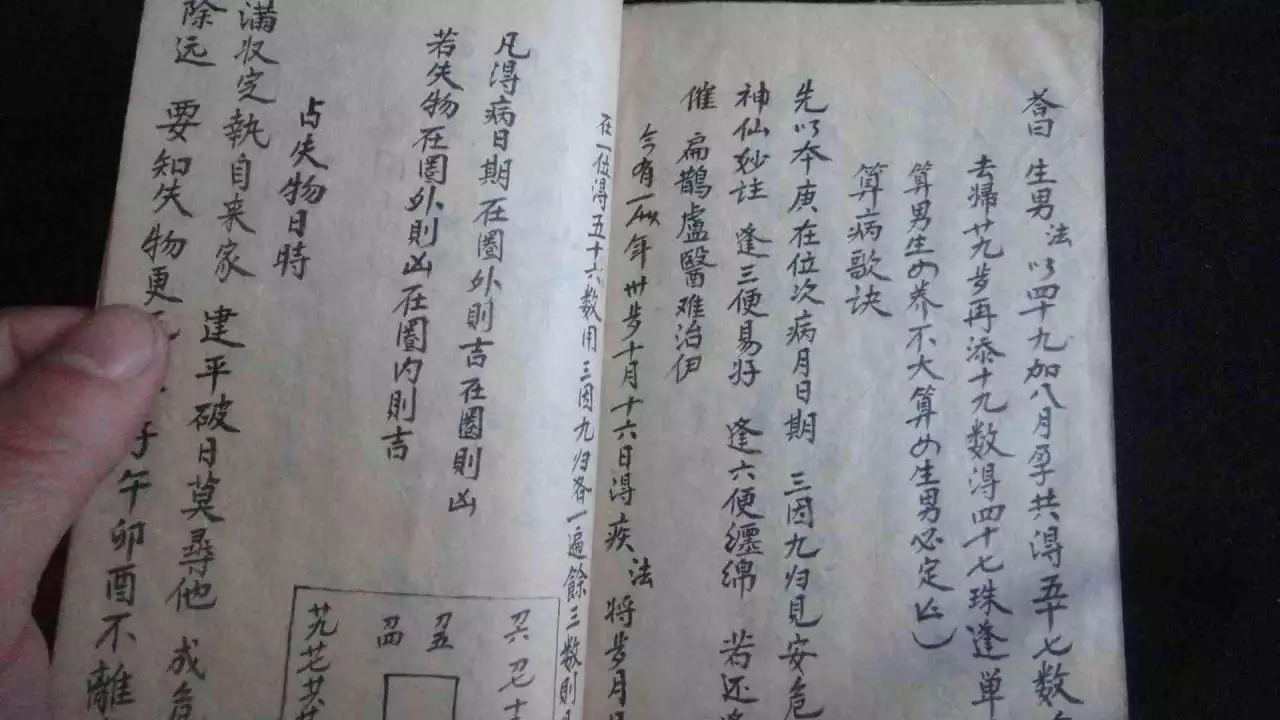 答曰 生男 法以四十九加八月孕共得五十七数
去歸廿九步再添十九数得四十七珠逢单
算男生女养不大算女生男必定
算病歌诀
先以本庚在位次病月日期 三因九归見安危
神仙妙註 逢三便易好 逢六便纒绵 若还
催 扁鵲盧醫难治伊
今有一 年卅步十月十六日得疾 法将步月
在一位得五十六数用三因九归各一遍餘三数則
凡得病日期在圈外則吉在圈則凶
若失物在圈外則凶在圈内則吉
初六 初七
初五
初四
廿九 廿七
占失物日時
满収定執自来家 建平破日莫尋他 成危
除远 要知失物更 子午卯酉不離